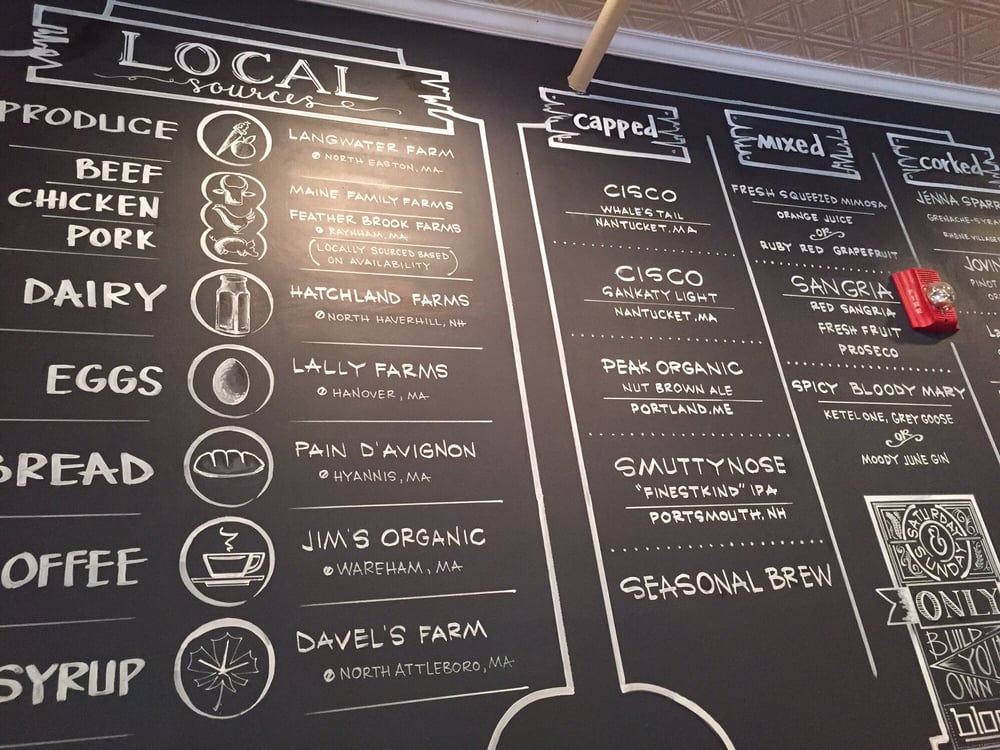 LOCAL
sources
PRODUCE
LANGWATER FARM
@ NORTH EASTON, MA
BEEF
MAINE FAMILY FARMS
CHICKEN
FEATHER BROOK FARMS
@ RAYNHAM, MA
PORK
(LOCALLY SOURCED BASED
ON AVAILABILITY)
DAIRY
HATCHLAND FARMS
@ NORTH HAVERHILL, NH
EGGS
LALLY FARMS
@ HANOVER, MA
BREAD
PAIN D'AVIGNON
@ HYANNIS, MA
OFFEE
JIM'S ORGANIC
@ WAREHAM, MA
SYRUP
DAVEL'S FARM
@ NORTH ATTLEBORO, MA
capped
CISCO
WHALE'S TAIL
NANTUCKET, MA
CISCO
SANKATY LIGHT
NANTUCKET, MA
PEAK ORGANIC
NUT BROWN ALE
PORTLAND, ME
SMUTTYNOSE
"FINESTKIND" IPA
PORTSMOUTH, NH
SEASONAL BREW
MIXED
FRESH SQUEEZED MIMOSA
ORANGE JUICE
OR
RUBY RED GRAPEFRUIT
SANGRIA
RED SANGRIA
FRESH FRUIT
PROSECO
SPICY BLOODY MARY
KETEL ONE, GREY GOOSE
OR
MOODY JUNE GIN
corked
JENNA SPARR
GRENACHE-SYRA
RHONE VILLAGE
JOVIN
PINOT
SATURDAY
&
SUNDAY
ONLY
BUILD
YOUR
OWN
bloo